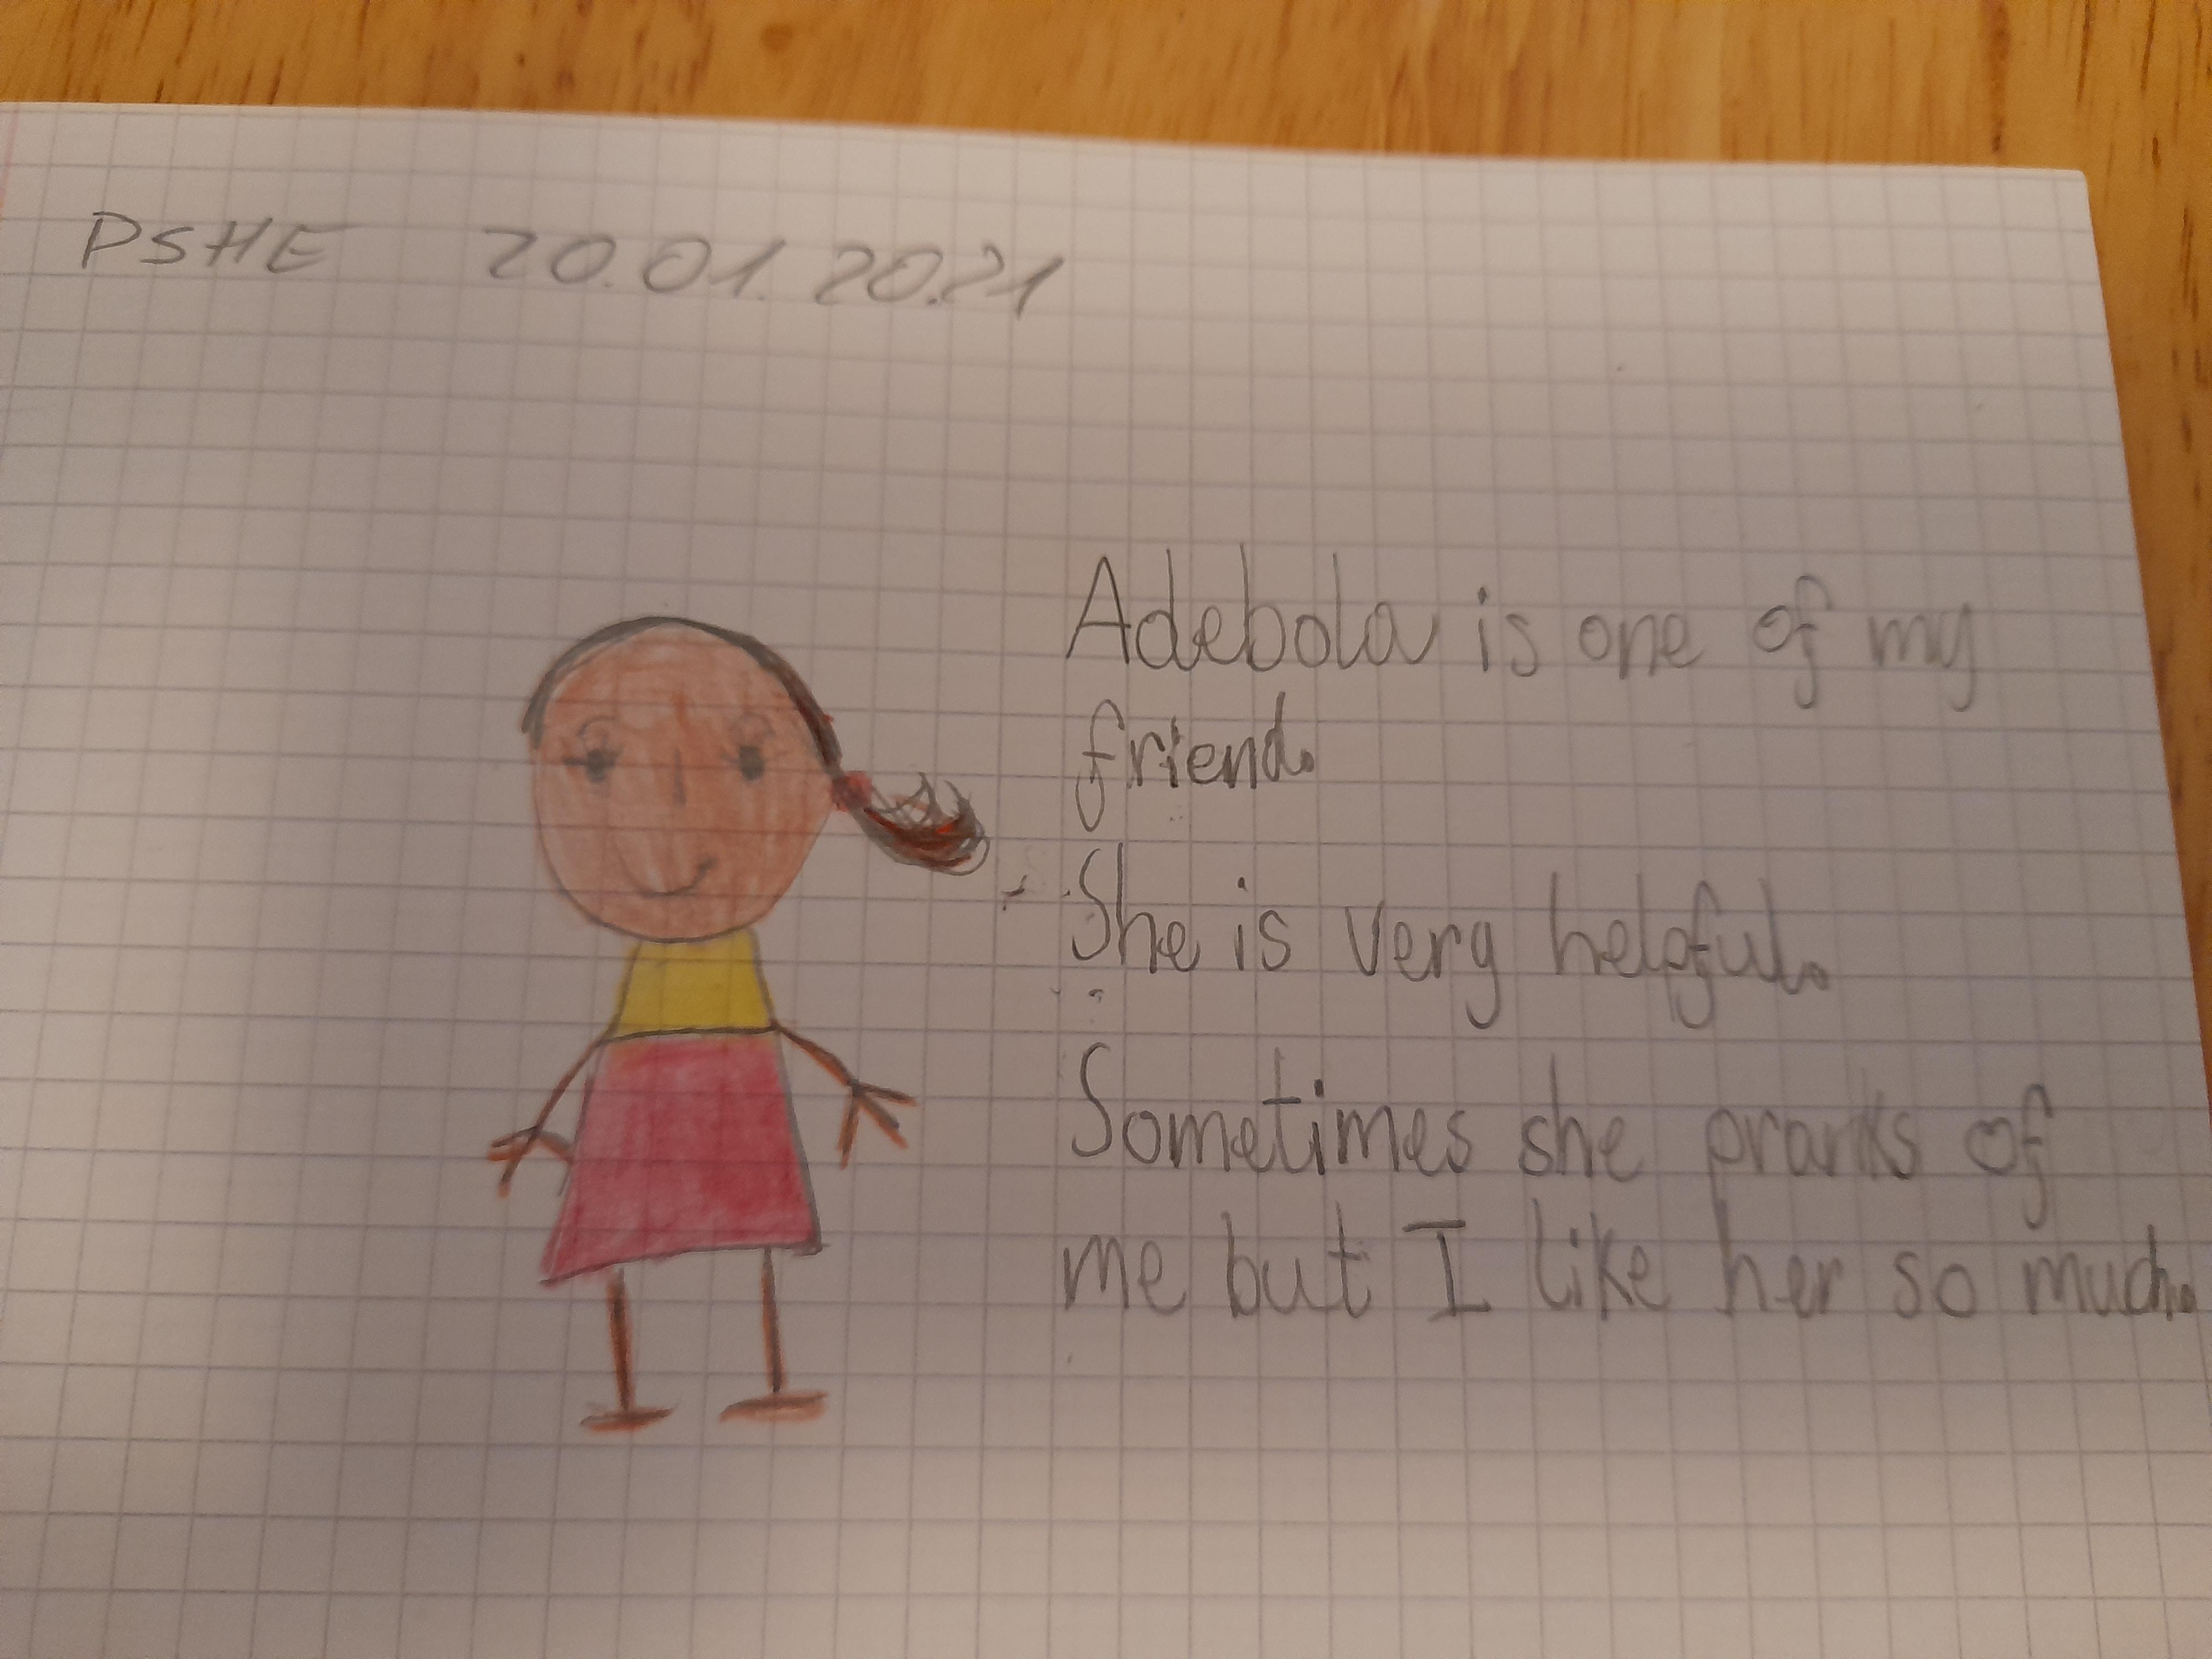 PSHE 20.01.2021
Adebola is one of my
friend.
She is very helpful.
Sometimes she pranks of
me but I like her so much.